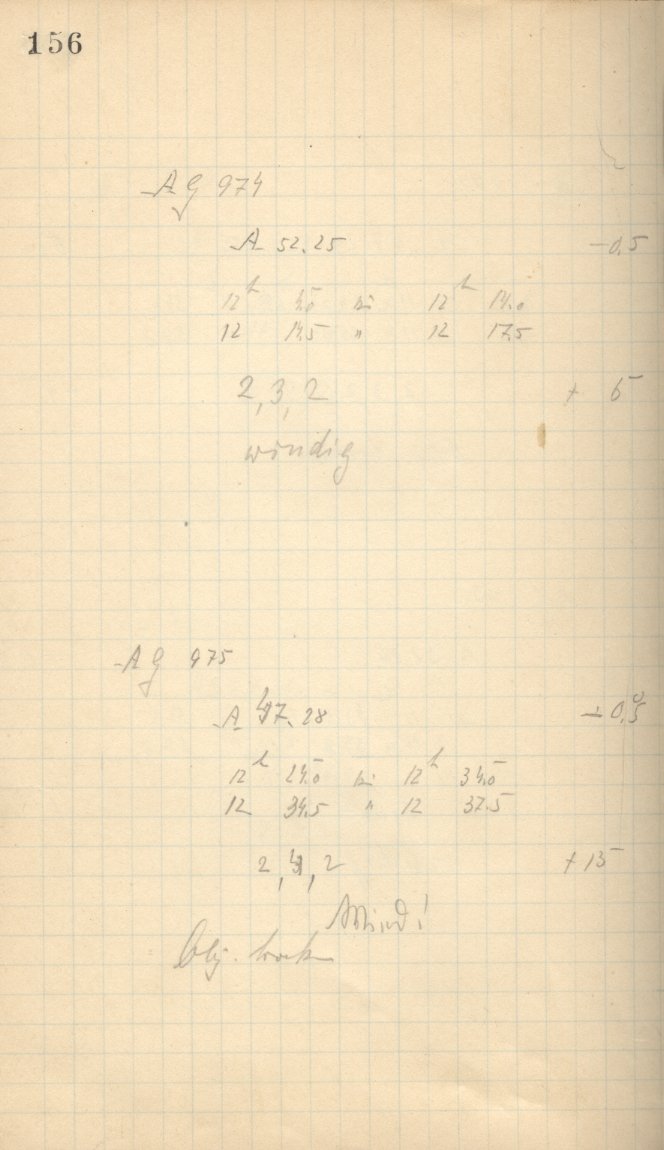 156
AG 974
A 52.25 -0.5
12h 4.0 bis 12h 14.0
12 14.5 " 12 17.5
2, 3, 2 + 5
windig
AG 975
A 47.28
12h 24.0 bis 12h 34.0
12 34.5 " 12 37.5
2, , 2 + 15
Wind!
Obj. trocken